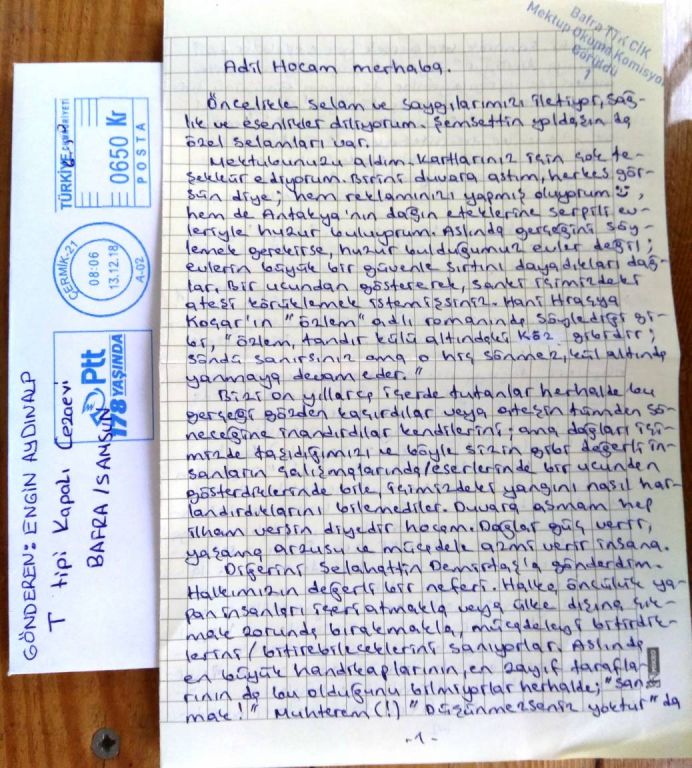 Bafra T.K CİK
Mektup Okuma Komisyon
Görüldü
1
Adil Hocam merhaba.
Öncelikle selam ve saygılarımızı iletiyor, sağ-
lık ve esenlikler diliyorum. Şemsettin yoldaşın da
özel selamları var.
Mektubunuzu aldım. Kartlarınız için çok te-
şekkür ediyorum. Birini duvara astım, herkes gör-
sün diye; hem reklamınızı yapmış oluyorum,
hem de Antakya'nın dağın eteklerine serpili ev-
leriyle huzur buluyorum. Aslında gerçeğini söy-
lemek gerekirse, huzur bulduğumuz evler değil;
evlerin büyük bir güvenle sırtını dayadıkları dağ-
lar. Bir ucundan göstererek, sanki içimizdeki
ateşi körüklemek istemişsiniz. Hani Hraçya
Koçar'ın "özlem" adlı romanında söylediği gi-
bi, "özlem, tandır külü altındaki köz gibidir;
söndü sanırsınız ama o hiç sönmez, kül altında
yanmaya devam eder."
Bizi on yıllarca içerde tutanlar herhalde bu
gerçeği gözden kaçırdılar veya ateşin tümden sö-
neceğine inandırdılar kendilerini; ama dağları içi-
mizde taşıdığımızı ve böyle sizin gibi değerli in-
sanların çalışmalarında/eserlerinde bir ucundan
gösterdiklerinde bile, içimizdeki yangını nasıl har-
landırdıklarını bilemediler. Duvara asmam hep
ilham versin diyedir hocam. Dağlar güç verir,
yaşama arzusu ve mücadele azmi verir insana.
Diğerini Selahattin Demirtaş'a gönderdim.
Halkımızın değerli bir neferi. Halka öncülük ya-
pan insanları içeri atmakla veya ülke dışına çık-
mak zorunda bırakmakla, mücadeleyi bitirdik-
lerini/bitirebileceklerini sanıyorlar. Aslında
en büyük handikaplarının, en zayıf tarafla-
rının da bu olduğunu bilmiyorlar herhalde; "san-
mak!" Muhterem(!) "Düşünmezseniz yoktur" da
-1-
GÖNDEREN: ENGİN AYDINALP
T tipi Kapalı Cezaevi
BAFRA/SAMSUN
TÜRKİYE CUMHURİYETİ
0650 Kr
POSTA
ÇERMİK-21
08:06
13.12.18
A-02
Ptt
178 YAŞINDA